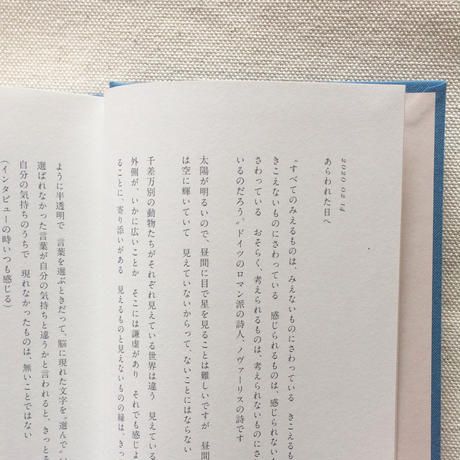 2020 02 14
あらわれた日へ
“すべてのみえるものは、みえないものにさわっている　きこえるもの
きこえないものにさわっている　感じられるものは、感じられないも
さわっている　おそらく、考えられるものは、考えられないものにさ
いるのだろう。”ドイツのロマン派の詩人、ノヴァーリスの詩です
太陽が明るいので、昼間に目で星を見ることは難しいですが　昼間
は空に輝いていて　見えていないからって、ないことにはならない
千差万別の動物たちがそれぞれ見えている世界は違う　見えている
外側が、いかに広いことか　そこには謙虚があり　それでも感じよ
ることに、寄り添いがある　見えるものと見えないものの縁は、きっ
ように半透明で　言葉を選ぶときだって、脳に現れた文字を“選んで”
選ばれなかった言葉が自分の気持ちと違うかと言われると、きっとそ
自分の気持ちのうちで　現れなかったものは、無いことではない
（インタビューの時いつも感じる）